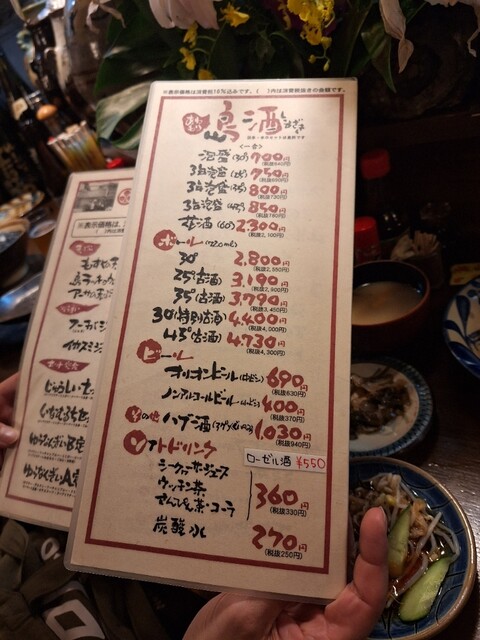 ※表示価格は消費税10%込みです。( )内は消費税抜きの金額です。
島酒
しまざき
〈一合〉
泡盛(30) 700円
(税抜640円)
3年泡盛(25) 750円
3年泡盛(35) 800円
(税抜730円)
3年泡盛(43) 850円
(税抜780円)
花酒(60) 2,300円
(税抜2,100円)
ボトル(720ml)
30° 2,800円
(税抜2,550円)
25°(古酒) 3,190円
(税抜2,900円)
35°(古酒) 3,790円
(税抜3,450円)
30°(特別古酒) 4,400円
(税抜4,000円)
43°(古酒) 4,730円
(税抜4,300円)
ビール
オリオンビール 690円
(税抜630円)
ノンアルコールビール 400円
(税抜370円)
その他 ハブ酒 1,030円
(税抜940円)
ローゼル酒 ¥550
ソフトドリンク
シークヮーサージュース
ウッチン茶
さんぴん茶・コーラ
360円
(税抜330円)
炭酸水 270円
(税抜250円)
※表示価格は
じゅうしぃ